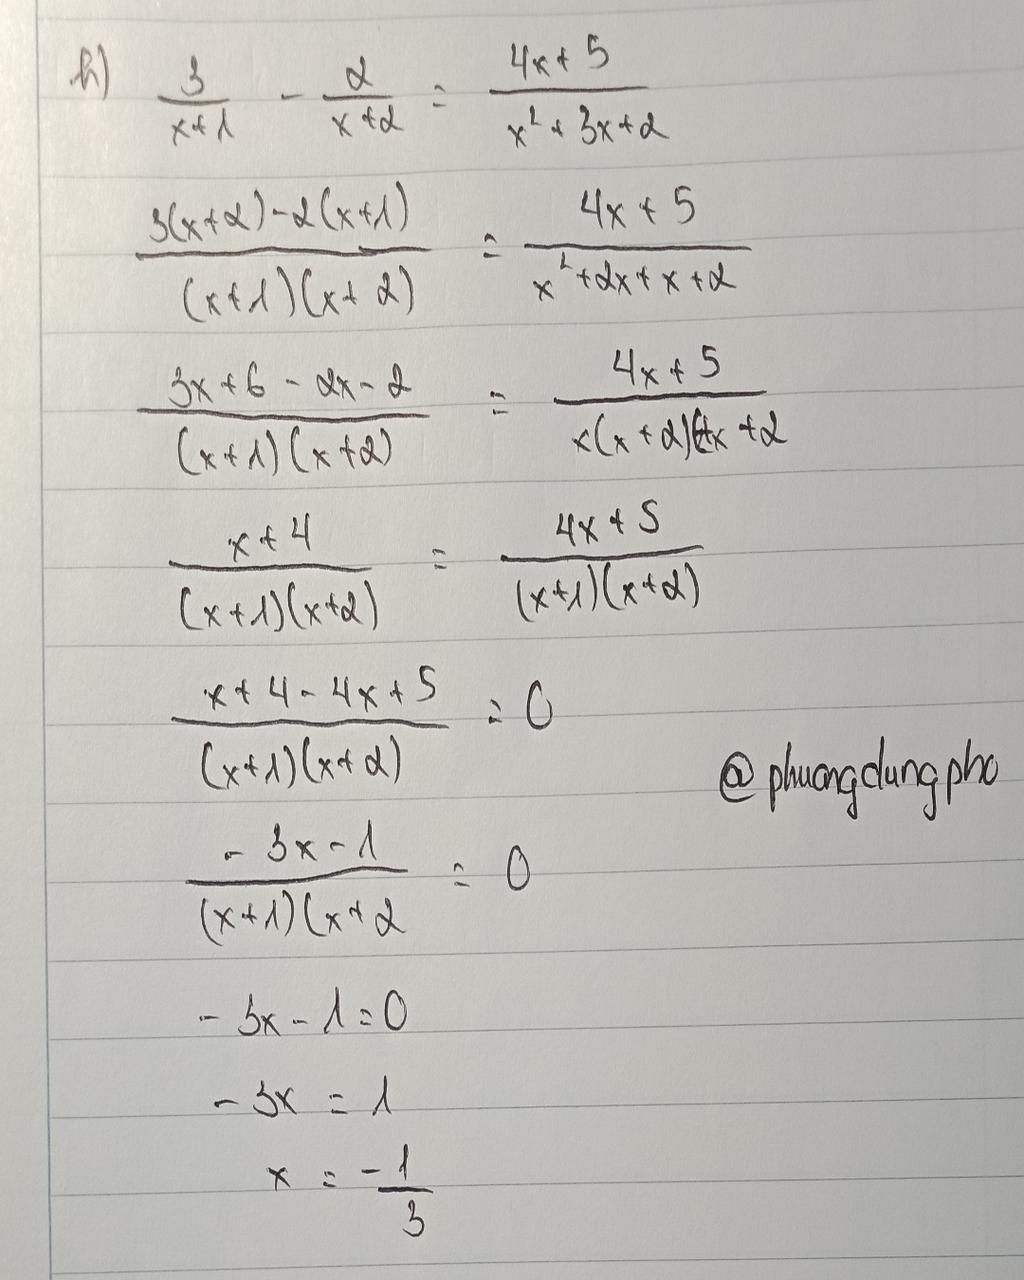 h) 3/(x+1) - 2/(x+2) = (4x+5)/(x²+3x+2)
(3(x+2)-2(x+1))/((x+1)(x+2)) = (4x+5)/(x²+2x+x+2)
(3x+6-2x-2)/((x+1)(x+2)) = (4x+5)/(x(x+2)+x+2)
(x+4)/((x+1)(x+2)) = (4x+5)/((x+1)(x+2))
(x+4-4x+5)/((x+1)(x+2)) = 0
@phuongdungpho
(-3x-1)/((x+1)(x+2) = 0
-3x-1=0
-3x = 1
x = -1/3